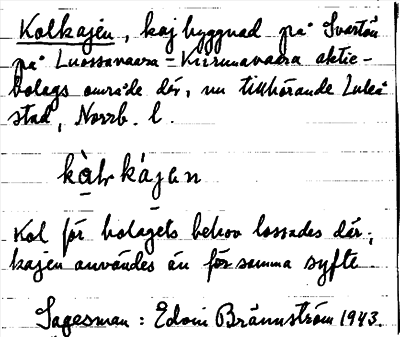 Kolkajen, kajbyggnad på Svartön
på Luossavaara-Kiirunavaara aktie-
bolags område där, nu tillhörande Luleå
stad, Norrb. l.
Kol för bolagets behov lossades där;
kajen användes än för samma syfte
Sagesman: Edvin Brännström 1943.